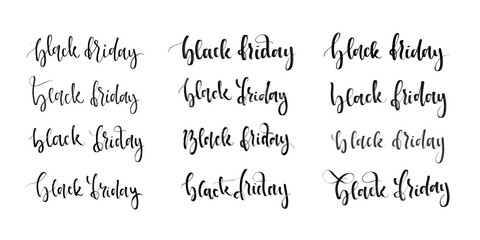 black friday black friday black friday
black friday black friday black friday
black friday Black friday black friday
black friday black friday black friday